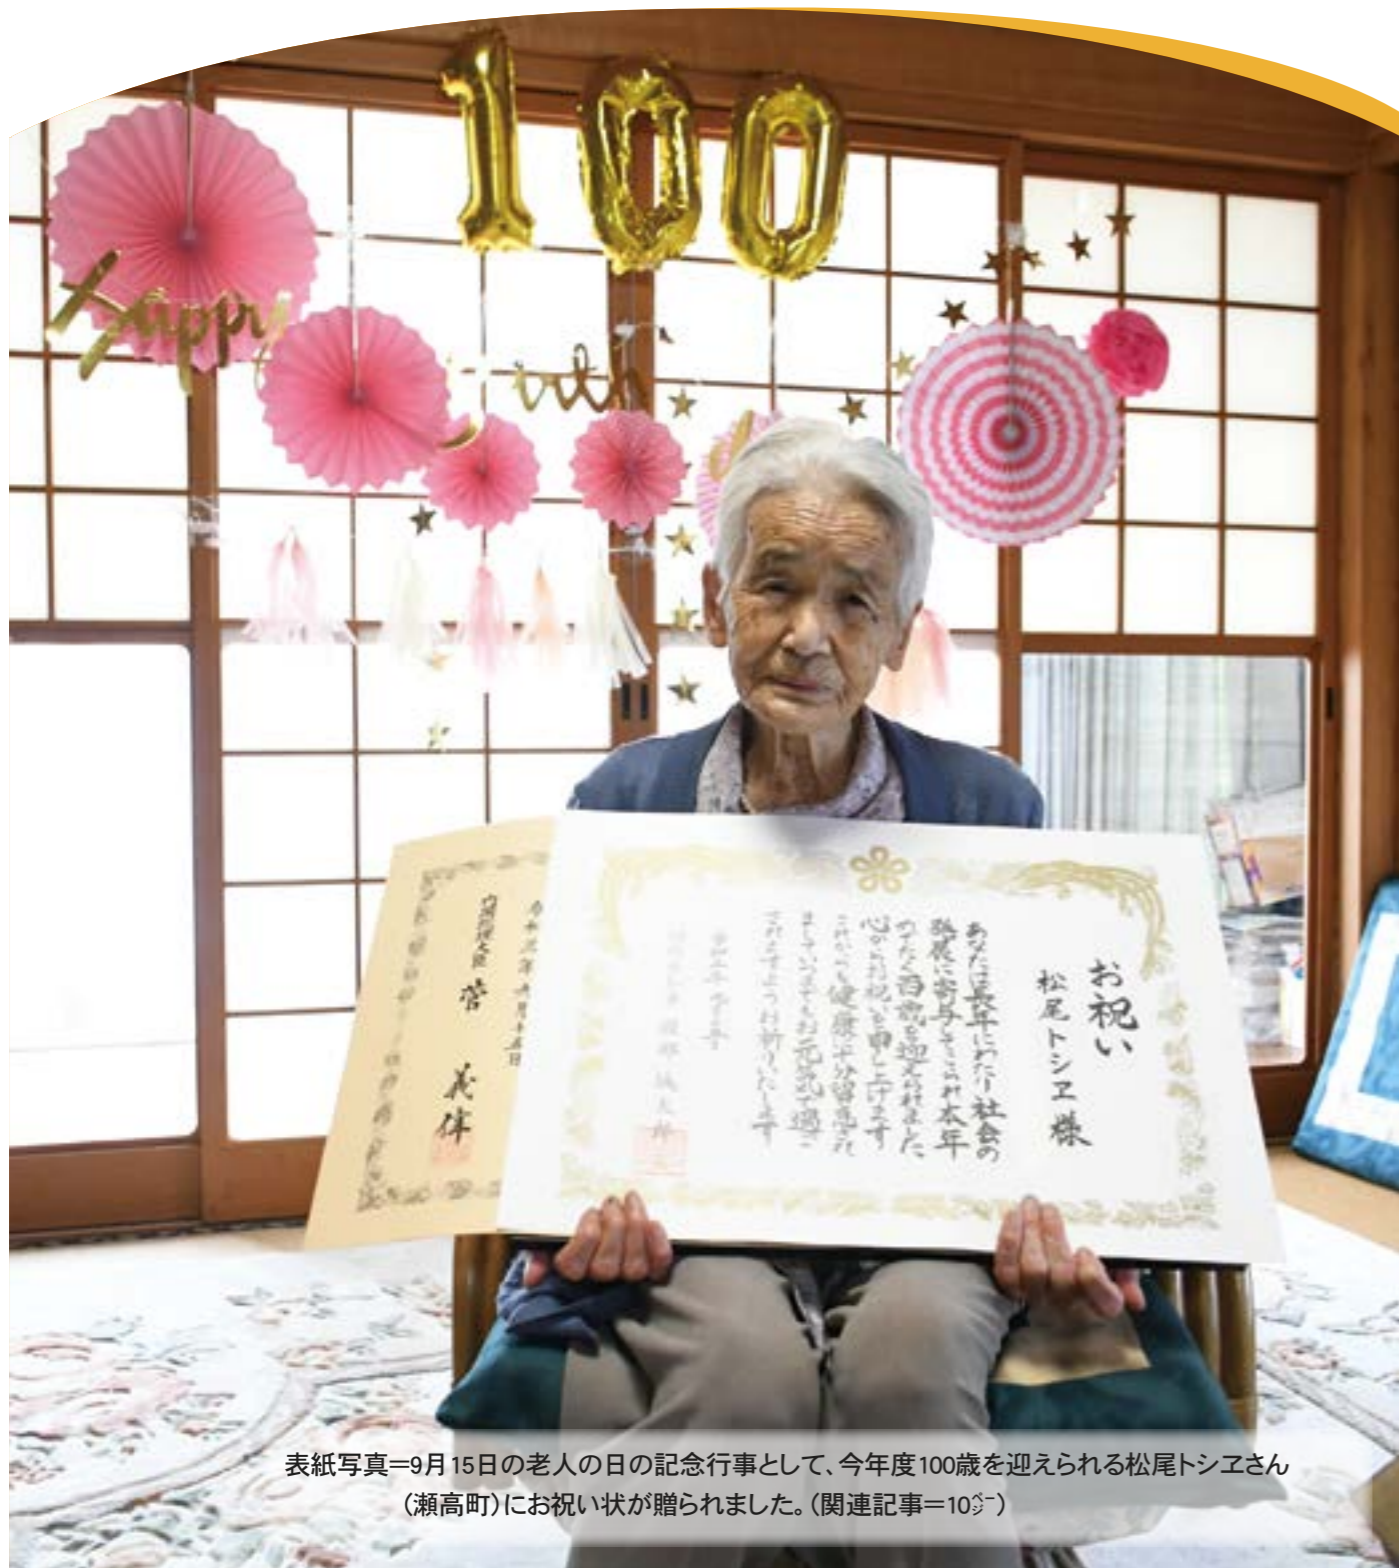 100
Happy
with
お祝い
松尾トシヱ 様
あなたは長年にわたり社会の
発展に寄与せられ本年
めでたく百歳を迎えられました
心からお祝いを申し上げます
これからも健康に十分留意され
ましていつまでもお元気で過ご
されますようお祈りいたします
令和三年九月十五日
内閣総理大臣 菅 義偉
表紙写真=9月15日の老人の日の記念行事として、今年度100歳を迎えられる松尾トシヱさん
(瀬高町)にお祝い状が贈られました。(関連記事=10㌻)